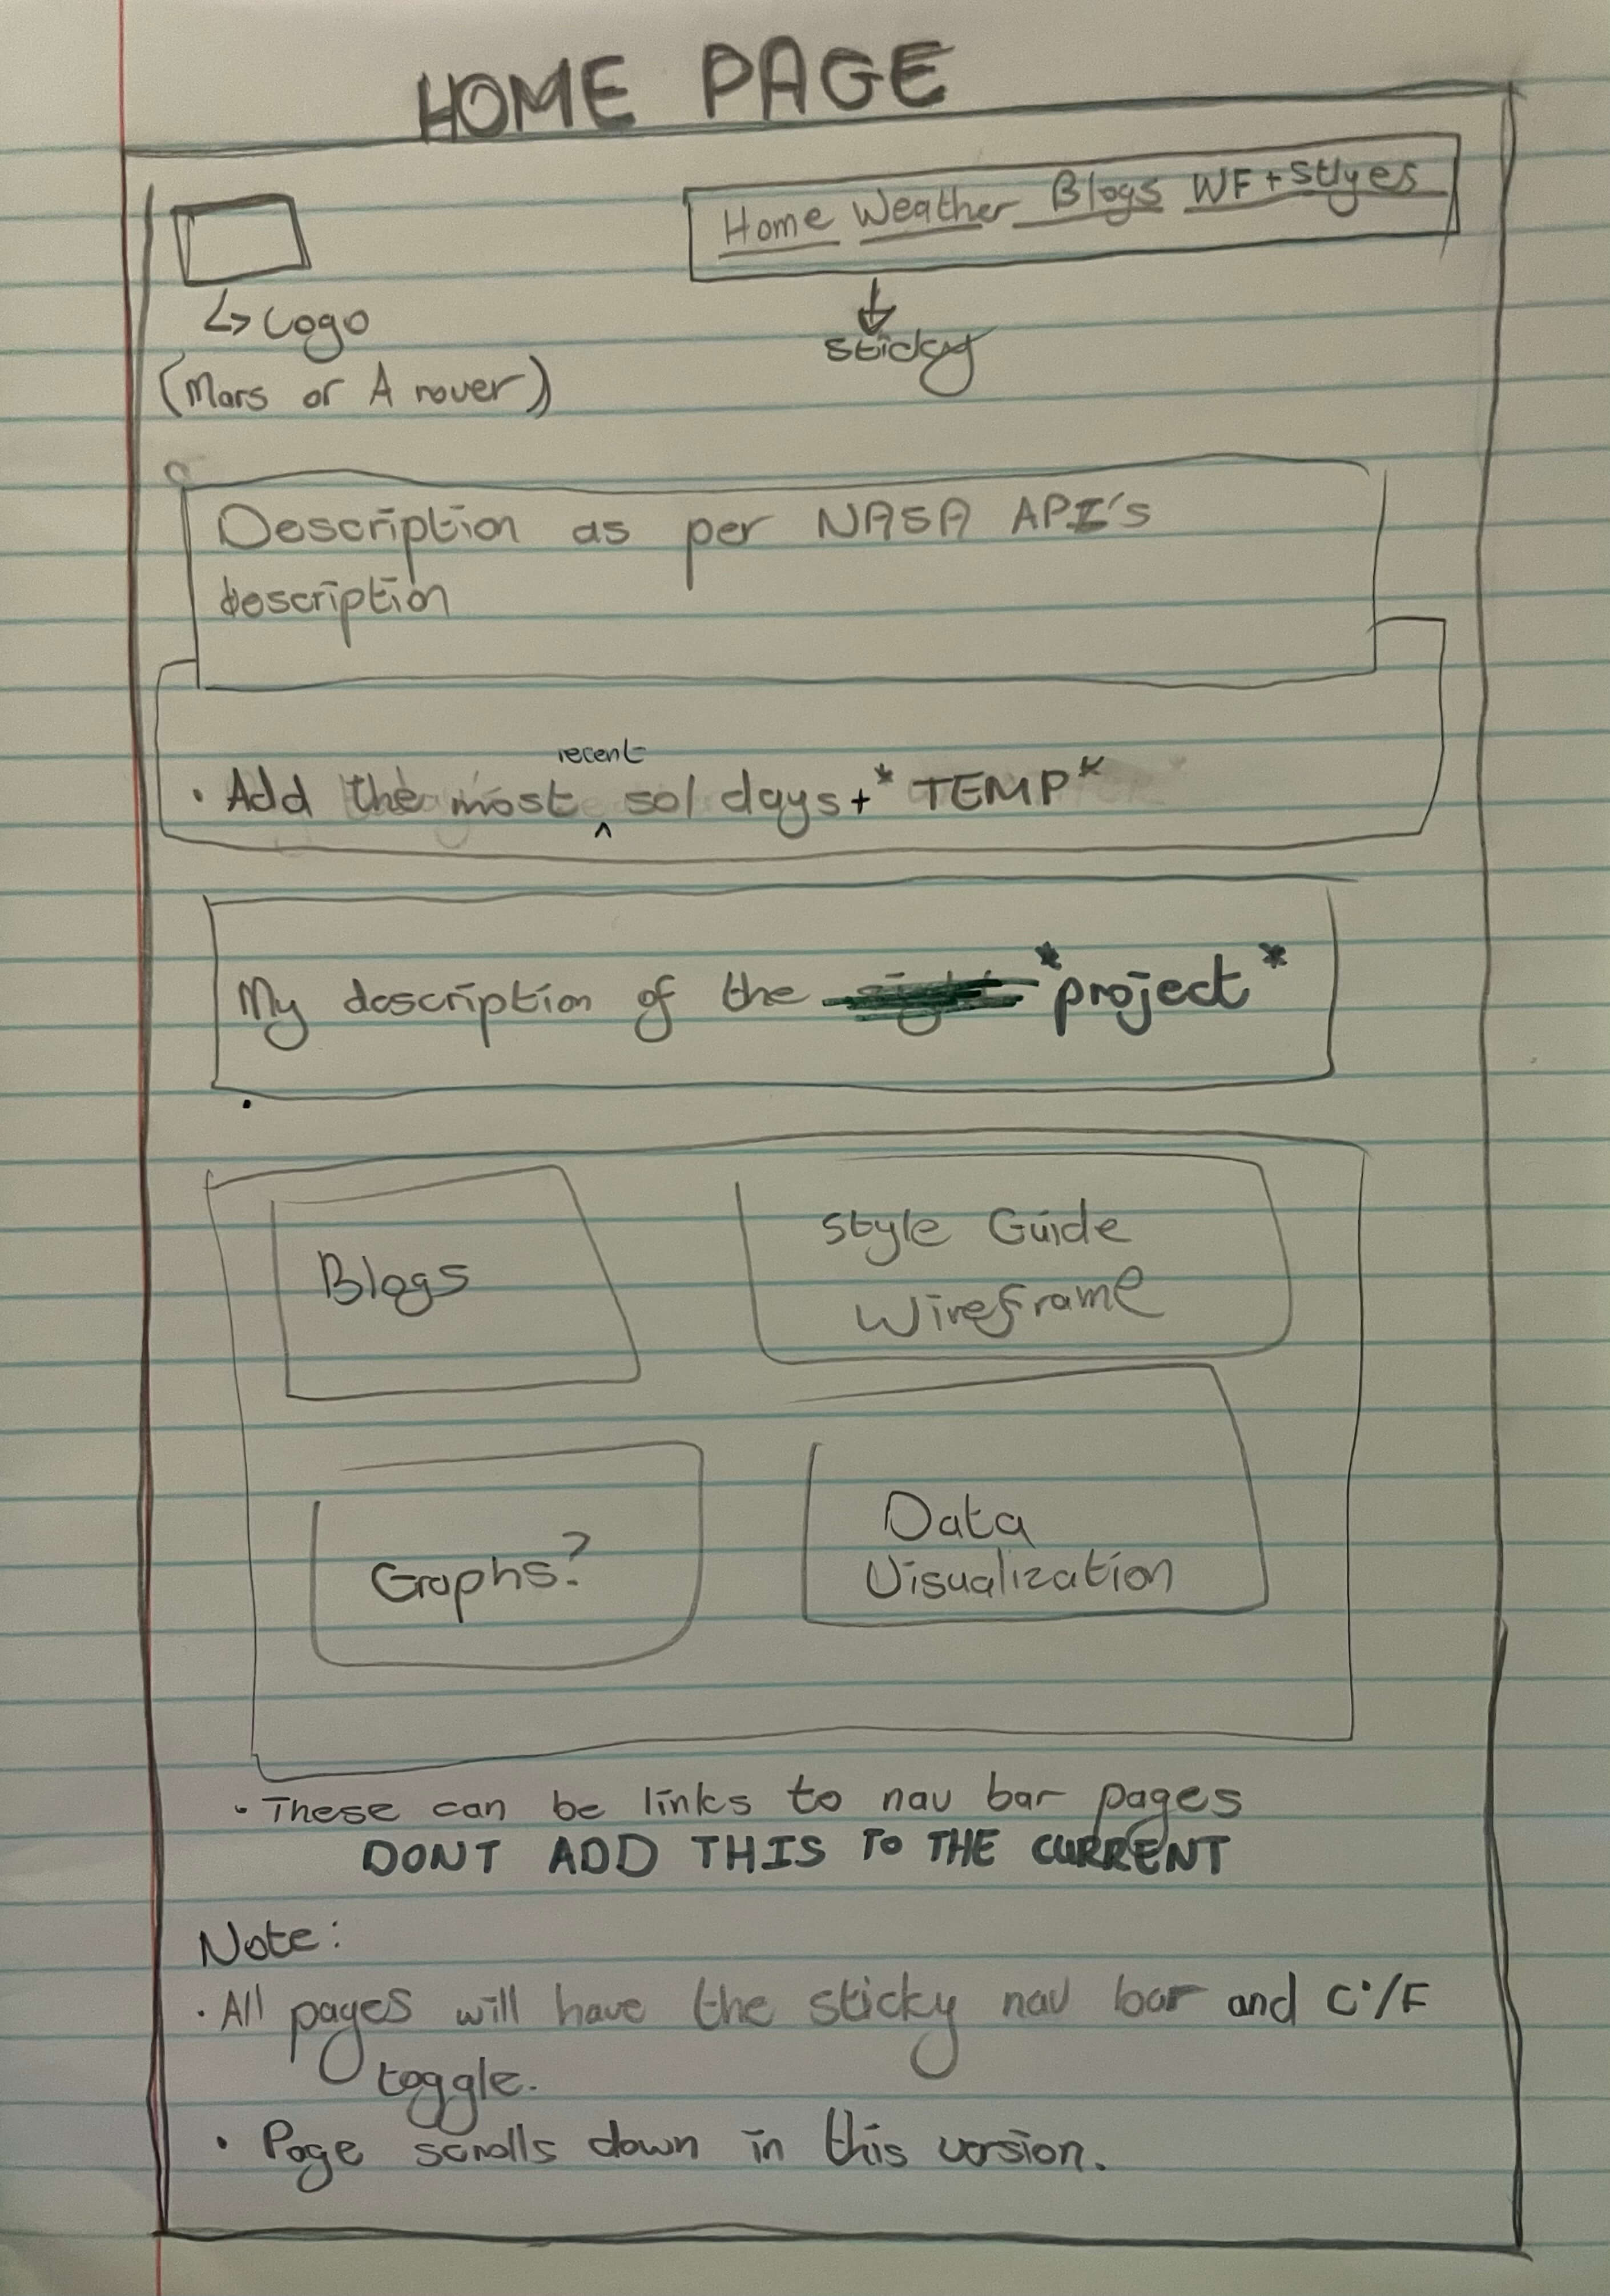 HOME PAGE
Home Weather Blogs WF + Stlyes
↳ Logo
sticky
(Mars or A rover)
Description as per NASA API's
description
recent
• Add the most ^ sol days + * TEMP *
My description of the * project *
Blogs
Style Guide
Wireframe
Graphs?
Data
Visualization
• These can be links to nav bar pages
DONT ADD THIS TO THE CURRENT
Note:
• All pages will have the sticky nav bar and C°/F
toggle.
• Page scrolls down in this version.